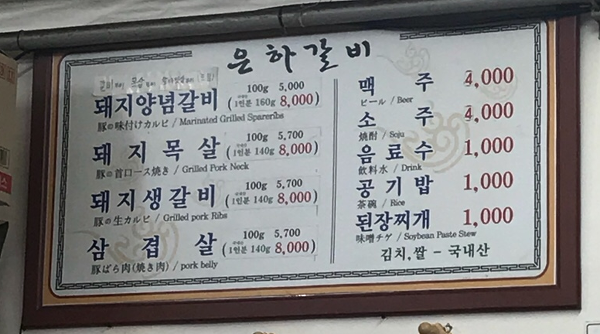 은하갈비
돼지양념갈비 100g 5,000 (1인분 160g 8,000)
豚の味付けカルビ / Marinated Grilled Spareribs
돼지목살 100g 5,700 (1인분 140g 8,000)
豚の首ロース焼き / Grilled Pork Neck
돼지생갈비 100g 5,700 (1인분 140g 8,000)
豚の生カルビ / Grilled pork Ribs
삼겹살 100g 5,700 (1인분 140g 8,000)
豚ばら肉(焼き肉) / pork belly
맥주 4,000
ビール / Beer
소주 4,000
焼酎 / Soju
음료수 1,000
飲料水 / Drink
공기밥 1,000
茶碗 / Rice
된장찌개 1,000
味噌チゲ / Soybean Paste Stew
김치,쌀 - 국내산